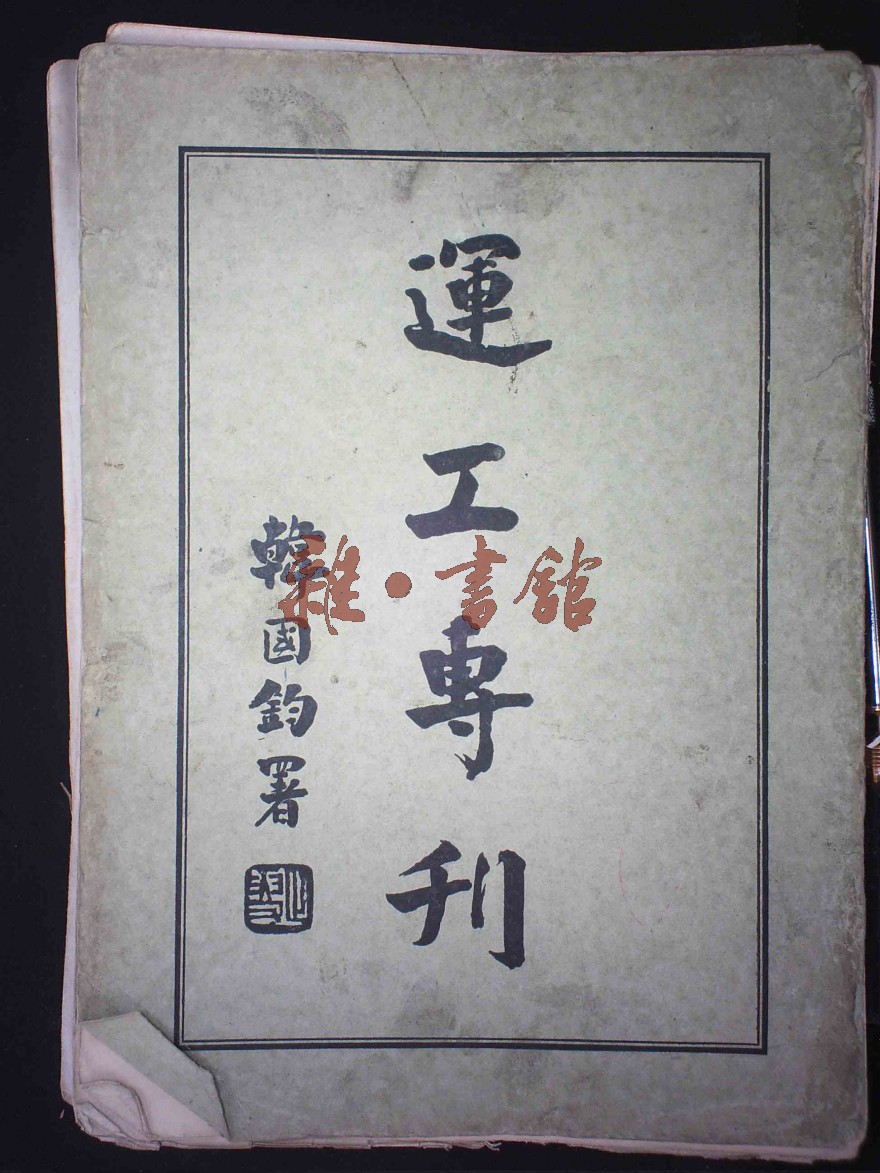 運工專刊
韓國鈞署
雜·書館